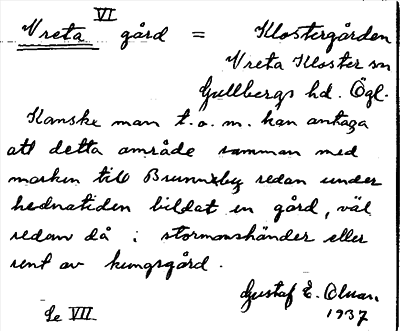 VI
Vreta gård = Klostergården
Vreta Kloster sn
Gullbergs hd. Ögl.
Kanske man t.o.m. kan antaga
att detta område samman med
marken till Brunnby redan under
hednatiden bildat en gård, väl
redan då i stormanshänder eller
rent av kungsgård.
Gustaf E. Olsson.
1937
Se VII.